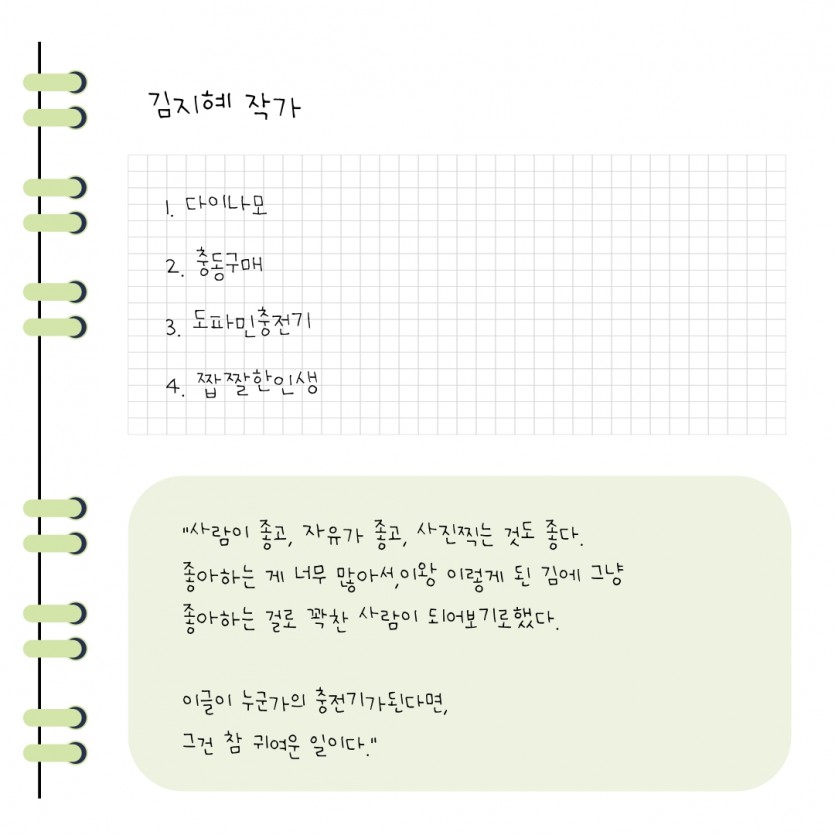 김지혜 작가
1. 다이나모
2. 충동구매
3. 도파민충전기
4. 짭짤한인생
"사람이 좋고, 자유가 좋고, 사진찍는 것도 좋다.
좋아하는 게 너무 많아서,이왕 이렇게 된 김에 그냥
좋아하는 걸로 꽉찬 사람이 되어보기로했다.
이글이 누군가의 충전기가된다면,
그건 참 귀여운 일이다."